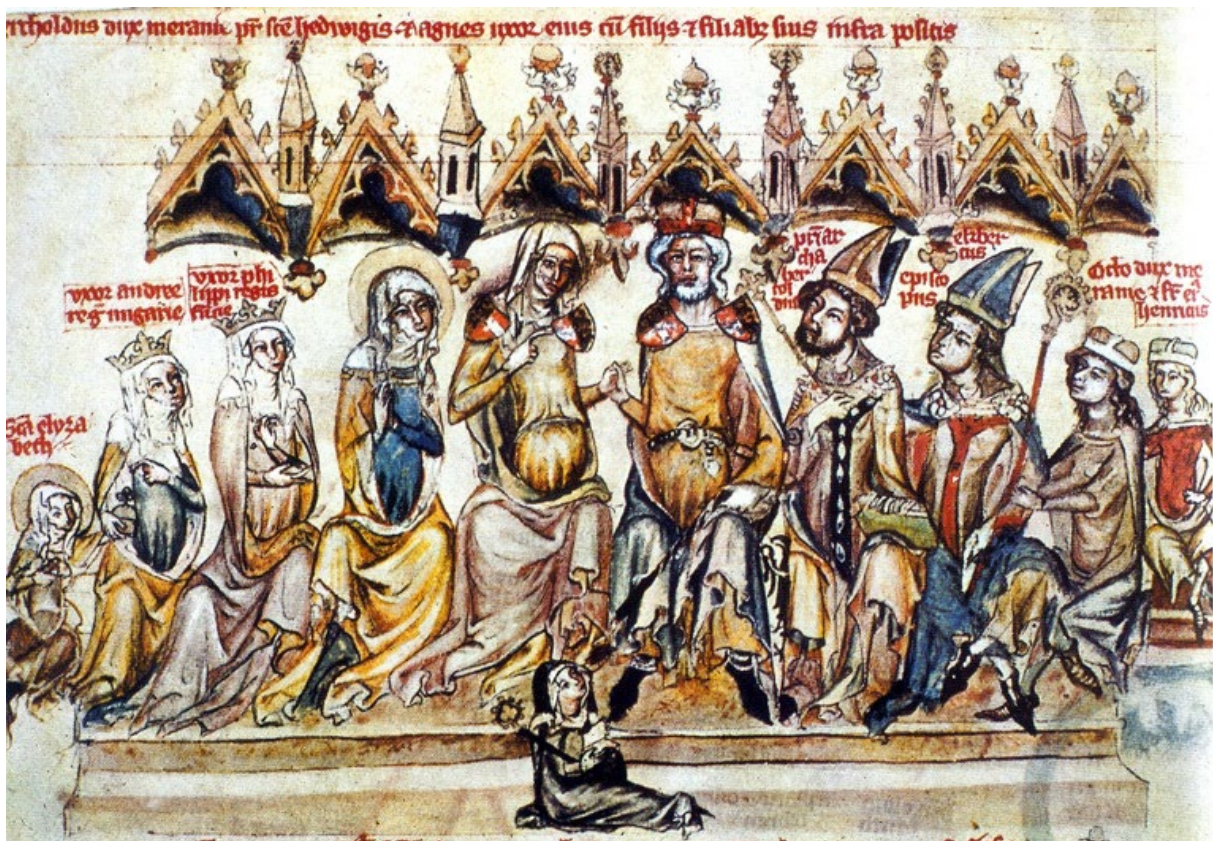 rtholdus dux meranie pr̄ scē hedwigis ⁊ agnes uxor eius cū filijs ⁊ filiabꝫ suis infra positis
uxor andree
reḡ ungarie
uxor phi
lippi regis
scā elyza
beth
pr̄iar
cha
ber
tol
dus
ekber
tus
epi sco
pus
Otto dux me
ranie ⁊ fr̄ eꝰ
henricus